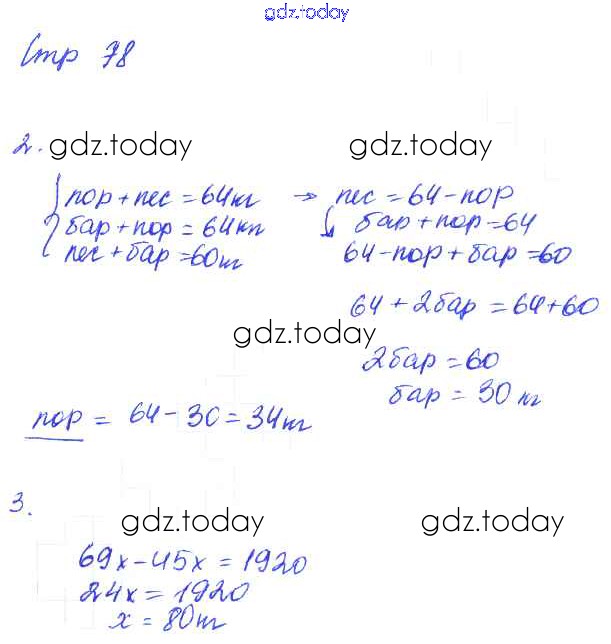 gdz.today
Стр 78
2. gdz.today gdz.today
пор + пес = 64 кг → пес = 64 - пор
бар + пор = 64 кг бар + пор = 64
пес + бар = 60 кг 64 - пор + бар = 60
64 + 2бар = 64 + 60
gdz.today
2бар = 60
бар = 30 кг
пор = 64 - 30 = 34 кг
3.
gdz.today gdz.today
69x - 45x = 1920
24x = 1920
x = 80 кг